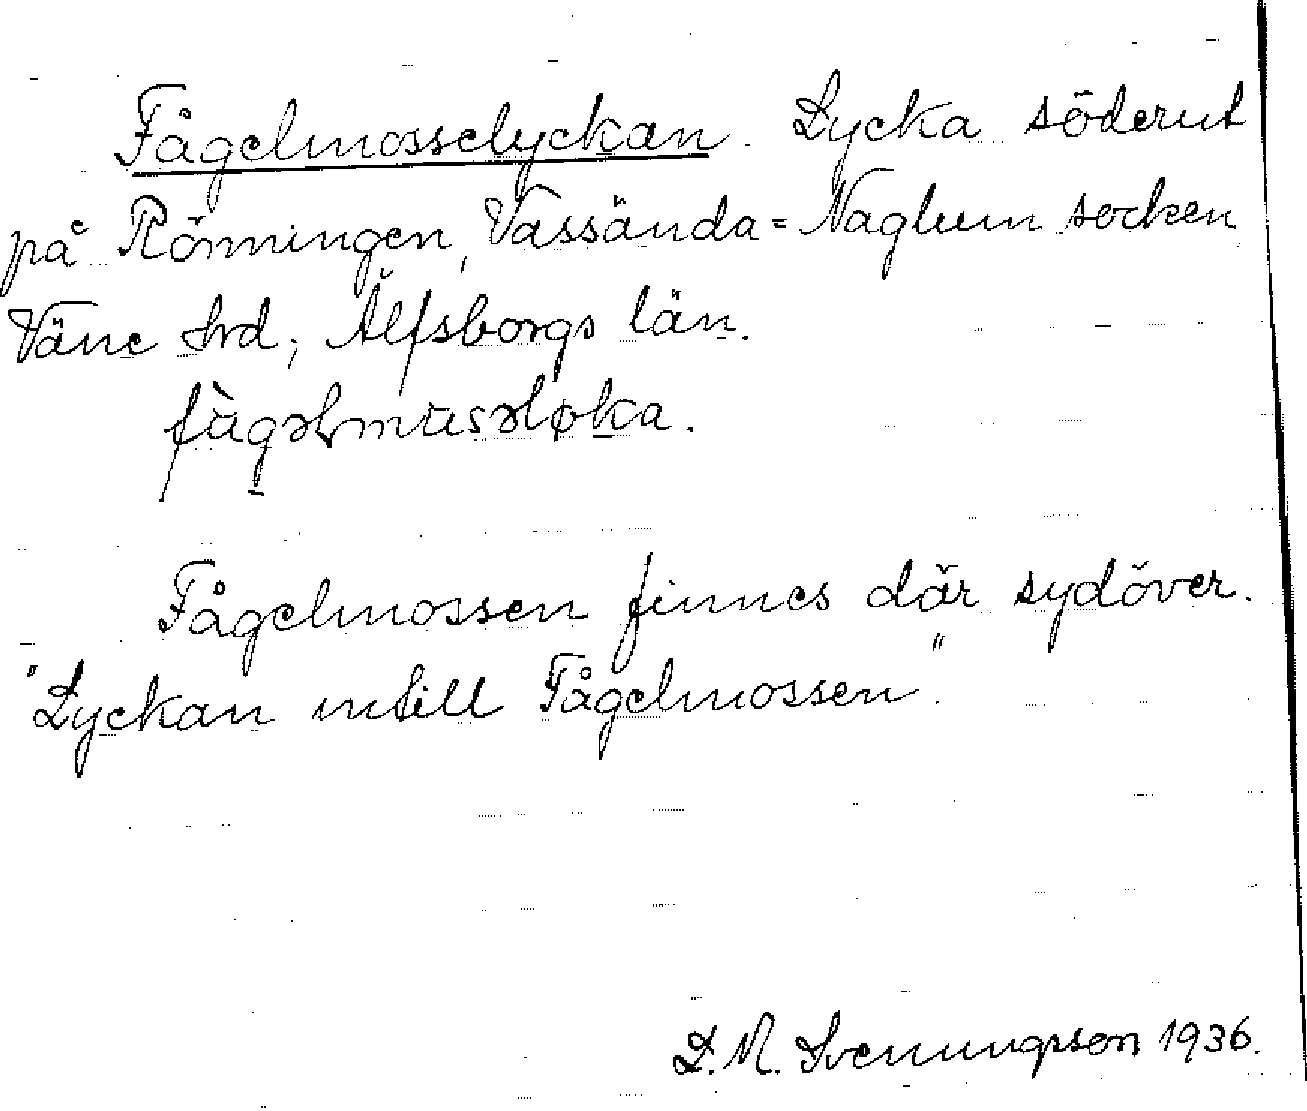 Fågelmosselyckan. Lycka söderut
på Rönningen, Vassända=Naglum socken
Väne hrd, Älfsborgs län.
fàgəlmɯsəløka.
Fågelmossen finnes där sydöver.
"Lyckan intill Fågelmossen".
D. M. Svenungsson 1936.